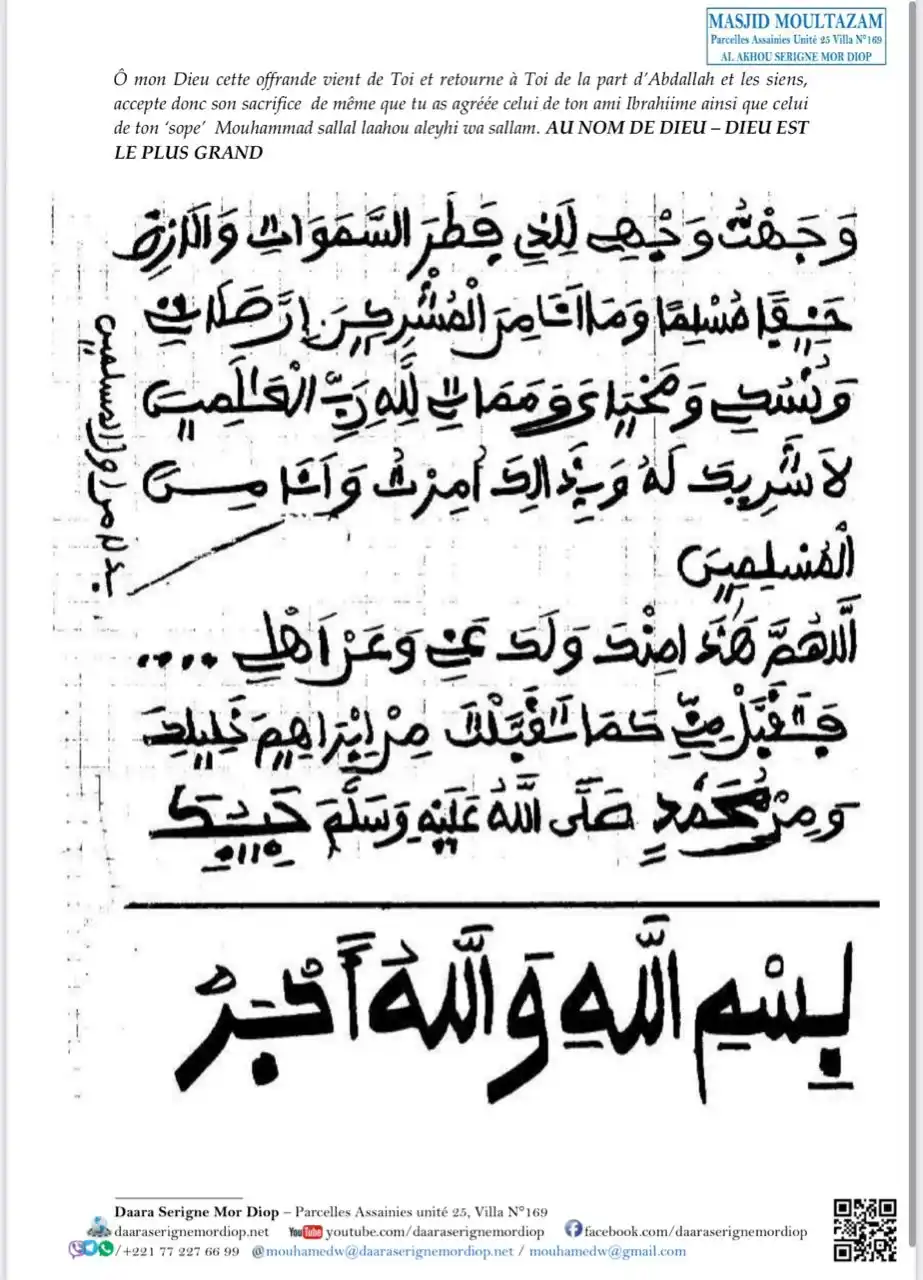 MASJID MOULTAZAM
Parcelles Assainies Unité 25 Villa N°169
AL AKHOU SERIGNE MOR DIOP
Ô mon Dieu cette offrande vient de Toi et retourne à Toi de la part d’Abdallah et les siens,
accepte donc son sacrifice de même que tu as agréée celui de ton ami Ibrahiime ainsi que celui
de ton ‘sope’ Mouhammad sallal laahou aleyhi wa sallam. AU NOM DE DIEU – DIEU EST
LE PLUS GRAND
وَجَّهْتُ وَجْهِيَ لِلَّذِي فَطَرَ السَّمَوَاتِ وَالَارْضَ
حَنِيفًا مُسْلِمًا وَمَا أَنَا مِنَ الْمُشْرِكِينَ إِنَّ صَلَاتِي
وَنُسُكِي وَمَحْيَاءَ وَمَمَاتِي لِلَّهِ رَبِّ الْعَالَمِينَ
لَا شَرِيكَ لَهُ وَبِذَالِكَ أُمِرْتُ وَأَنَا مِنَ
الْمُسْلِمِينَ
اللَّهُمَّ هَذَا مِنْكَ وَلَكَ عَنِّي وَعَنْ أَهْلِي ....
فَتَقَبَّلْ مِنِّي كَمَا تَقَبَّلْتَ مِنْ إِبْرَاهِيمَ خَلِيلِكَ
وَمِنْ مُحَمَّدٍ صَلَّى اللَّهُ عَلَيْهِ وَسَلَّمَ حَبِيبِكَ
بِسْمِ اللَّهِ وَاللَّهُ أَكْبَرُ
Daara Serigne Mor Diop – Parcelles Assainies unité 25, Villa N°169
daaraserignemordiop.net YouTube youtube.com/daaraserignemordiop facebook.com/daaraserignemordiop
/+221 77 227 66 99 @mouhamedw@daaraserignemordiop.net / mouhamedw@gmail.com